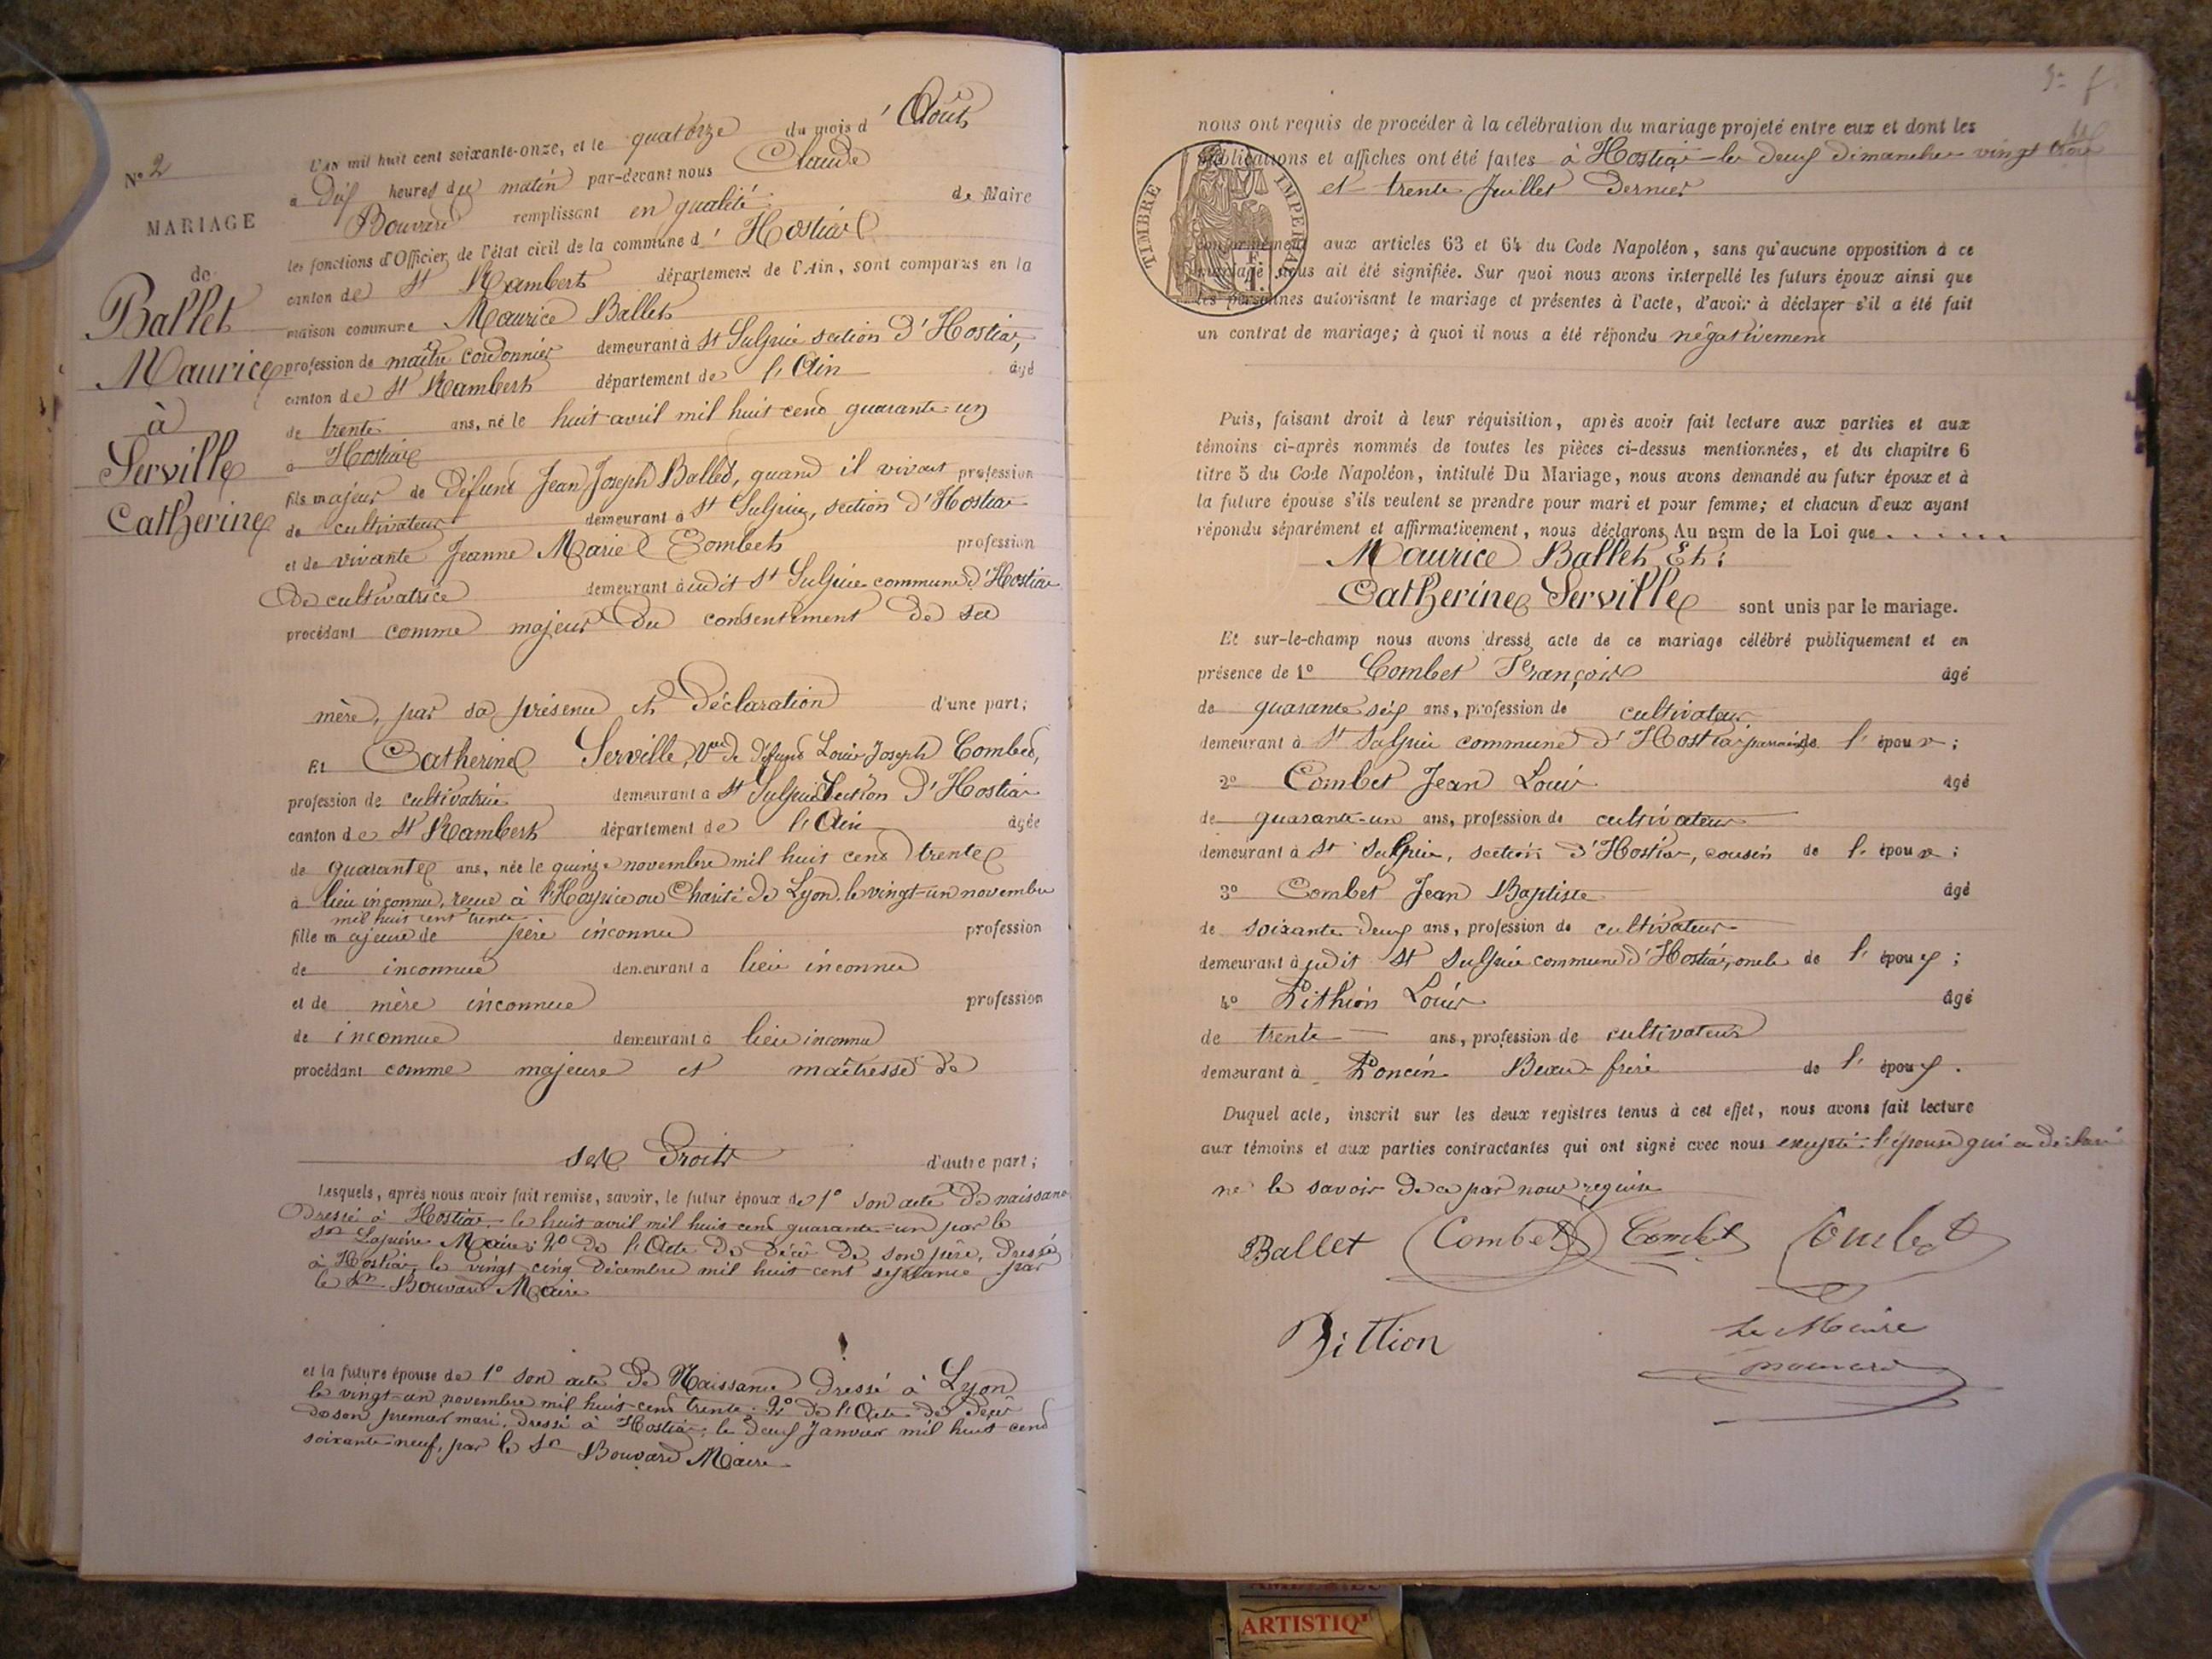 N° 2
MARIAGE
de
Ballet
Maurice
à
Serville
Catherine
L'an mil huit cent soixante-onze, et le quatorze du mois d'Août
à Dix heures du matin par-devant nous Claude
Bouvard remplissant en qualité de Maire
les fonctions d'Officier de l'état civil de la commune d'Hostiaz
canton de St Rambert département de l'Ain, sont comparus en la
maison commune Maurice Ballet
profession de maître cordonnier demeurant à St Sulpice section d'Hostiaz,
canton de St Rambert département de l'Ain âgé
de trente ans, né le huit avril mil huit cent quarante-un
à Hostiaz
fils majeur de Défunt Jean Joseph Ballet, quand il vivait profession
de cultivateur demeurant à St Sulpice, section d'Hostiaz
et de vivante Jeanne Marie Combet profession
De cultivatrice demeurant à udit St Sulpice commune d'Hostiaz
procédant comme majeur Du consentement De sa
mère, par sa présence et Déclaration d'une part;
Et Catherine Serville, Vve de défunt Louis Joseph Combet,
profession de cultivatrice demeurant à St Sulpice Section D'Hostiaz
canton de St Rambert département de l'Ain âgée
de quarante ans, née le quinze novembre mil huit cent trente
à lieu inconnu, reçue à l'Hospice ou Charité de Lyon, le vingt-un novembre
mil huit cent trente
fille majeure de père inconnu profession
de inconnue demeurant à lieu inconnu
et de mère inconnue profession
de inconnue demeurant à lieu inconnu
procédant comme majeure et maîtresse de
ses Droits d'autre part;
Lesquels, après nous avoir fait remise, savoir, le futur époux de 1° son acte De naissance
Dressé à Hostiaz, le huit avril mil huit cent quarante-un par le
Sr Lapierre Maire; 2° De l'Acte De Décès De son père, Dressé
à Hostiaz, le vingt cinq Décembre mil huit cent septante par
le Sr Bouvard Maire
et la future épouse de 1° son acte De Naissance Dressé à Lyon
le vingt-un novembre mil huit cent trente. 2° De l'Acte de Décès
de son premier mari, dressé à Hostiaz, le deux Janvier mil huit cent
soixante-neuf, par le Sr Bouvard Maire
nous ont requis de procéder à la célébration du mariage projeté entre eux et dont les
publications et affiches ont été faites à Hostiaz les deux dimanches vingt trois
et trente Juillet Dernier
TIMBRE IMPERIAL
conformément aux articles 63 et 64 du Code Napoléon, sans qu'aucune opposition à ce
mariage nous ait été signifiée. Sur quoi nous avons interpellé les futurs époux ainsi que
les personnes autorisant le mariage et présentes à l'acte, d'avoir à déclarer s'il a été fait
un contrat de mariage; à quoi il nous a été répondu négativement
Puis, faisant droit à leur réquisition, après avoir fait lecture aux parties et aux
témoins ci-après nommés de toutes les pièces ci-dessus mentionnées, et du chapitre 6
titre 5 du Code Napoléon, intitulé Du Mariage, nous avons demandé au futur époux et à
la future épouse s'ils veulent se prendre pour mari et pour femme; et chacun d'eux ayant
répondu séparément et affirmativement, nous déclarons Au nom de la Loi que......
Maurice Ballet Et:
Catherine Serville sont unis par le mariage.
Et sur-le-champ nous avons dressé acte de ce mariage célébré publiquement et en
présence de 1° Combet François âgé
de quarante six ans, profession de cultivateur
demeurant à St Sulpice commune d'Hostiaz parrain de l'époux;
2° Combet Jean Louis âgé
de quarante-un ans, profession de cultivateur
demeurant à St Sulpice, section d'Hostiaz, cousin de l'époux;
3° Combet Jean Baptiste âgé
de soixante deux ans, profession de cultivateur
demeurant à udit St Sulpice commune d'Hostiaz, oncle de l'époux;
4° Pithion Louis âgé
de trente ans, profession de cultivateur
demeurant à Poncin Beau-frère de l'époux.
Duquel acte, inscrit sur les deux registres tenus à cet effet, nous avons fait lecture
aux témoins et aux parties contractantes qui ont signé avec nous excepté l'épouse qui a déclaré
ne le savoir De ce par nous requise
Ballet Combet Combet Combet
Pittion
Le Maire
Bouvard
ARTISTIQ